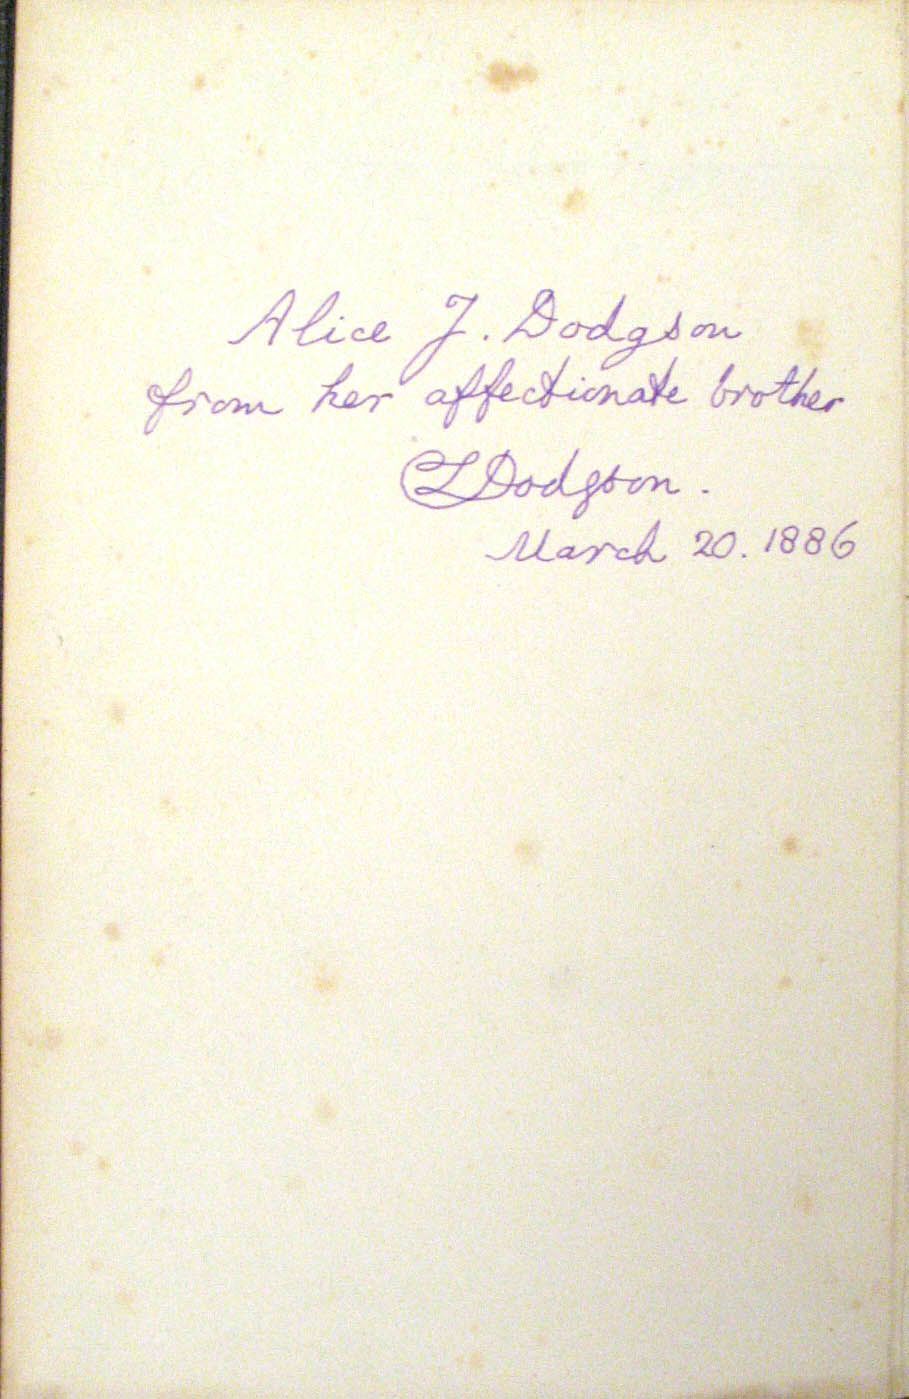 Alice J. Dodgson
from her affectionate brother
CLDodgson.
March 20. 1886